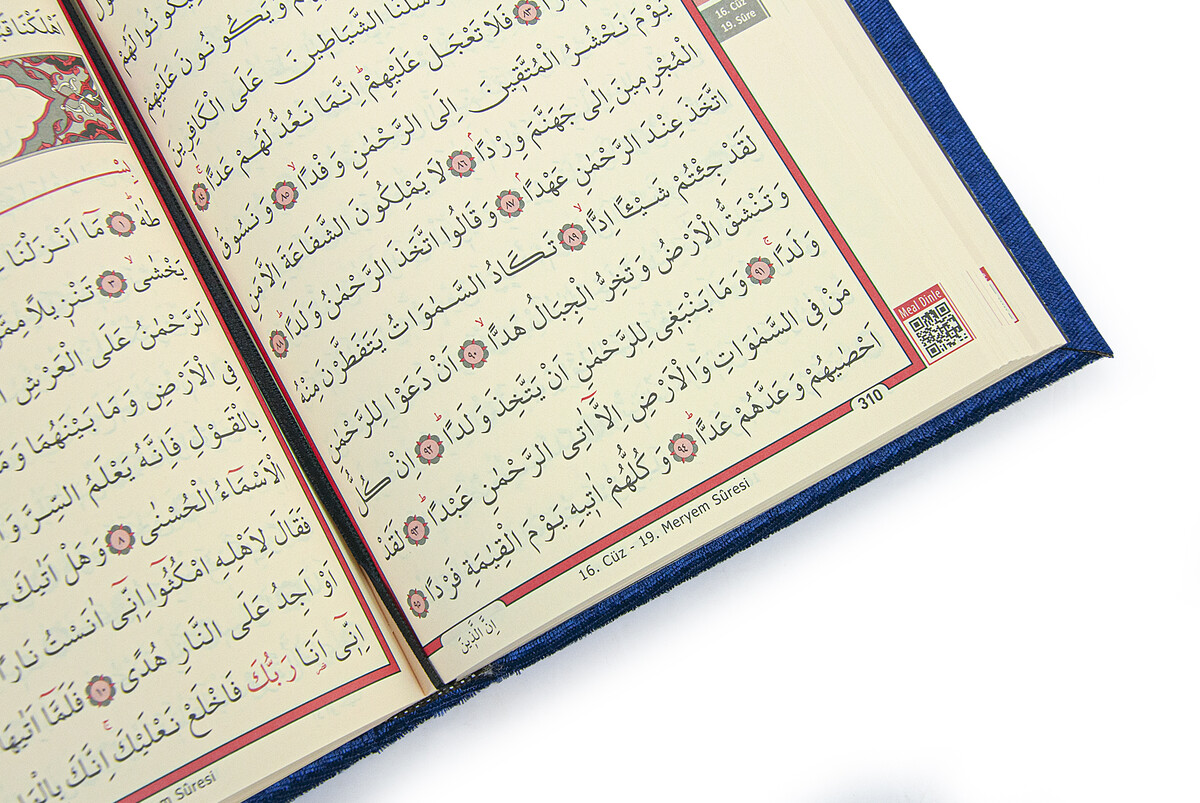 16. Cüz
19. Sûre
وَيَكُونُونَ عَلَيْهِمْ
الشَّيَاطِينَ عَلَى الْكَافِرِينَ
﴿٨٣﴾ فَلَا تَعْجَلْ عَلَيْهِمْ اِنَّمَا نَعُدُّ لَهُمْ عَدًّا ﴿٨٤﴾
يَوْمَ نَحْشُرُ الْمُتَّقِينَ اِلَى الرَّحْمٰنِ وَفْدًا ﴿٨٥﴾ وَنَسُوقُ
الْمُجْرِمِينَ اِلٰى جَهَنَّمَ وِرْدًا ﴿٨٦﴾ لَا يَمْلِكُونَ الشَّفَاعَةَ اِلَّا مَنِ
اتَّخَذَ عِنْدَ الرَّحْمٰنِ عَهْدًا ﴿٨٧﴾ وَقَالُوا اتَّخَذَ الرَّحْمٰنُ وَلَدًا ﴿٨٨﴾
لَقَدْ جِئْتُمْ شَيْئًا اِدًّا ﴿٨٩﴾ تَكَادُ السَّمٰوَاتُ يَتَفَطَّرْنَ مِنْهُ
وَتَنْشَقُّ الْاَرْضُ وَتَخِرُّ الْجِبَالُ هَدًّا ﴿٩٠﴾ اَنْ دَعَوْا لِلرَّحْمٰنِ
وَلَدًا ﴿٩١﴾ وَمَا يَنْبَغِى لِلرَّحْمٰنِ اَنْ يَتَّخِذَ وَلَدًا ﴿٩٢﴾ اِنْ كُلُّ
مَنْ فِى السَّمٰوَاتِ وَالْاَرْضِ اِلَّٓا اٰتِى الرَّحْمٰنِ عَبْدًا ﴿٩٣﴾ لَقَدْ
اَحْصٰيهُمْ وَعَدَّهُمْ عَدًّا ﴿٩٤﴾ وَكُلُّهُمْ اٰتِيهِ يَوْمَ الْقِيٰمَةِ فَرْدًا ﴿٩٥﴾
310
16. Cüz - 19. Meryem Sûresi
اِنَّ الَّذِينَ
Meal Dinle
طٰهٰ ﴿١﴾ مَٓا اَنْزَلْنَا
يَخْشٰى ﴿٣﴾ تَنْزِيلًا مِمَّ
اَلرَّحْمٰنُ عَلَى الْعَرْشِ
فِى الْاَرْضِ وَمَا بَيْنَهُمَا وَمَا
بِالْقَوْلِ فَاِنَّهُ يَعْلَمُ السِّرَّ
الْاَسْمَٓاءُ الْحُسْنٰى ﴿٨﴾ وَهَلْ اَتٰيكَ
فَقَالَ لِاَهْلِهِ امْكُثُٓوا اِنِّٓى اٰنَسْتُ نَارًا
اَوْ اَجِدُ عَلَى النَّارِ هُدًى ﴿١٠﴾ فَلَمَّٓا اَتٰيهَا
اِنِّٓى اَنَا رَبُّكَ فَاخْلَعْ نَعْلَيْكَ اِنَّكَ
Sûresi